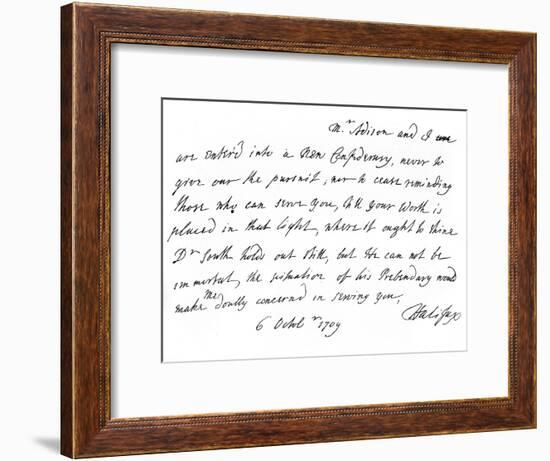 Mr. Adison and I
are enter'd into a New Confederacy, never to
give over the pursuit, nor to cease reminding
those who can serve you, till your worth is
placed in that light, where it ought to shine
Dr South holds out still, but He can not be
immortal, the situation of his Prebendary would
make me doubly concernd in serving you,
6 Octobr 1709
Halifax